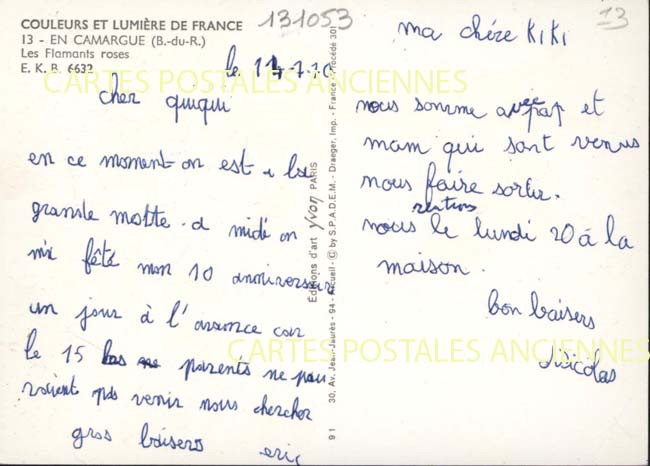 COULEURS ET LUMIÈRE DE FRANCE
13 - EN CAMARGUE (B.-du-R.)
Les Flamants roses
E. K. B. 6632
131053
13
CARTES POSTALES ANCIENNES
le
cher quiqui
en ce moment on est a la
grande motte. a midi on
m'a fêté mon 10 anniversaire
un jour à l'avance car
le 15 les parents ne pou
vaient pas venir nous chercher
gros baisers eric
Editions d'art yvon PARIS
30, Av. Jean-Jaurès - 94 - Arcueil - © by S.P.A.D.E.M. - Draeger, Imp. - France - Procédé 301
91
ma chére KIKI
nous somme avec pap et
mam qui sont venus
nous faire sortir.
nous rentrons le lundi 20 á la
maison.
bon baisers
Nicolas
CARTES POSTALES ANCIENNES